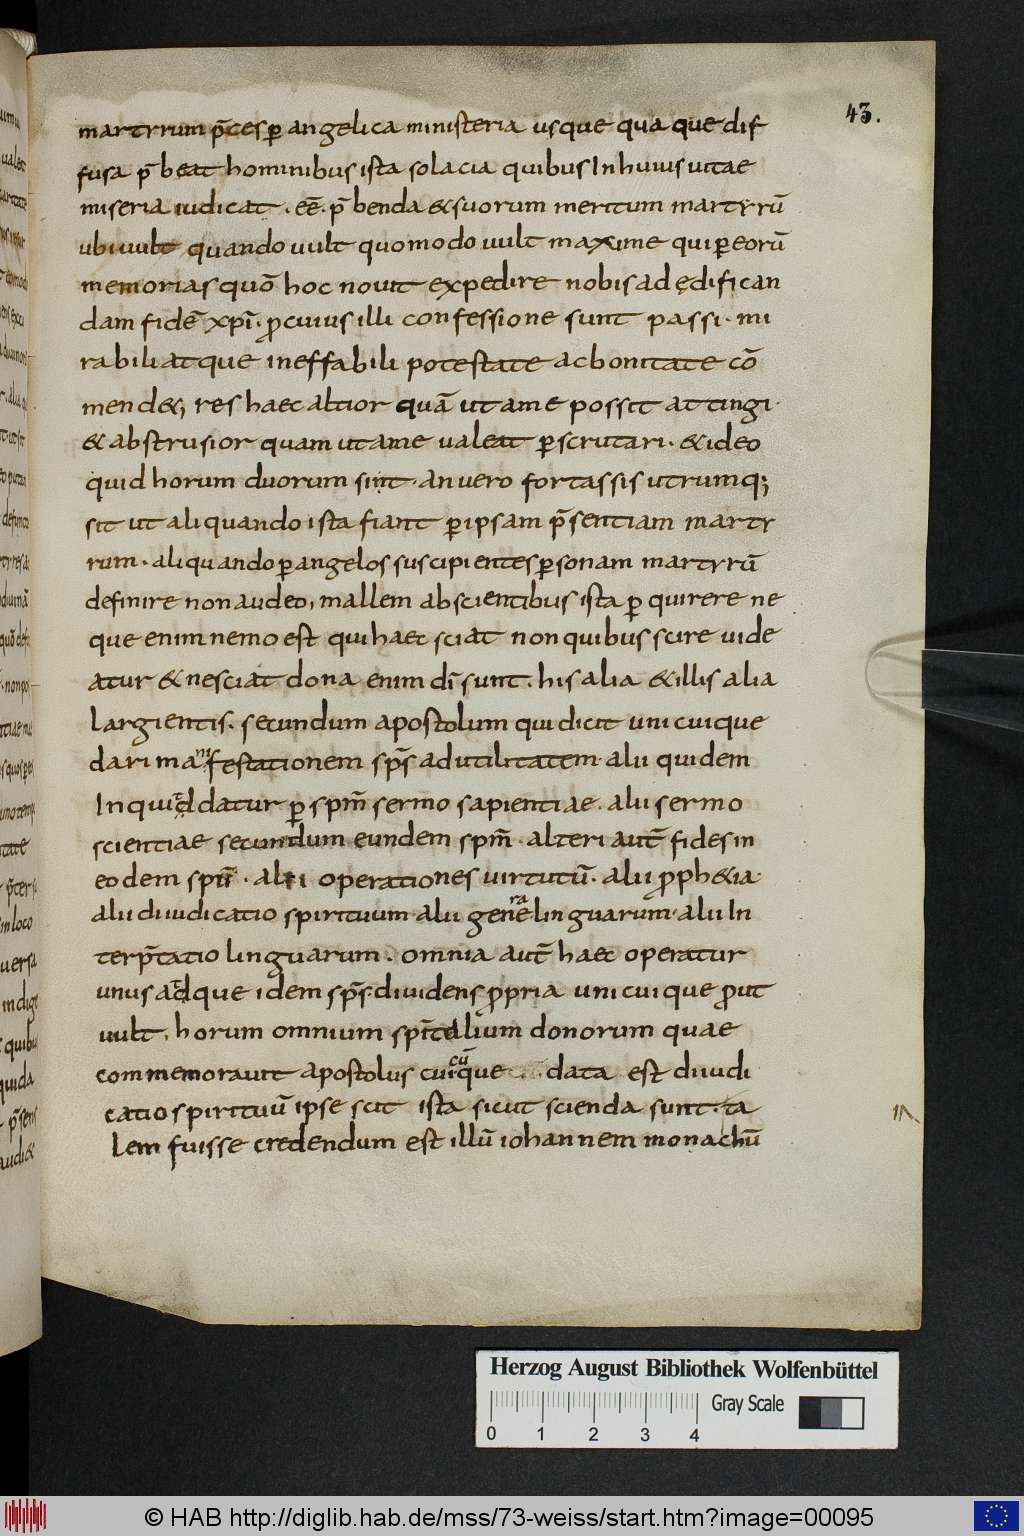 43.
martyrum p̄ces ꝑ angelica ministeria usque qua que dif
fusa p̄beat hominibus ista solacia quibus In huius uitae
miseria iudicat . eē . p̄benda & suorum meritum martyrū
ubi uult quando uult quomodo uult maxime qui ꝑ eorū
memorias quō hoc nouit expedire nobis ad ędifican
dam fidē xp̄i . ꝓ cuius illi confessione sunt passi . mi
rabili atque ineffabili potestate ac bonitate cō
mend&; res haec altior quā ut a me possit attingi .
& abstrusior quam ut a me ualeat ꝑscrutari . & ideo
quid horum duorum sint . an uero fortassis utrumq;
sit ut aliquando ista fiant ꝑ ipsam p̄sentiam marty
rum . aliquando ꝑ angelos suscipientes ꝑsonam martyrū
definire non audeo, mallem ab scientibus ista ꝑquirere ne
que enim nemo est qui haec sciat non quibus scire uide
atur & nesciat dona enim dī sunt . his alia & illis alia
largientis . secundum apostolum qui dicit unicuique
dari manifestationem sp̄s ad utilitatem . alii quidem
Inquid datur ꝑ sp̄m sermo sapientiae . alii sermo
scientiae secundum eundem sp̄m . alteri aut̄ fides in
eodem spū . altri operationes uirtutū . alii ꝓph&ia .
alii diiudicatio spirituum . alii genera linguarum . alii In
terp̄tatio linguarum . omnia aut̄ haec operatur
unus adque idem sp̄s diuidens ꝓpria unicuique ꝓut
uult , horum omnium sp̄italium donorum quae
commemorauit apostolus cuicūque data est diiudi
catio spirituū ipse scit ista sicut scienda sunt . ta
lem fuisse credendum est illū iohannem monachū
Herzog August Bibliothek Wolfenbüttel
Gray Scale
0 1 2 3 4
© HAB http://diglib.hab.de/mss/73-weiss/start.htm?image=00095